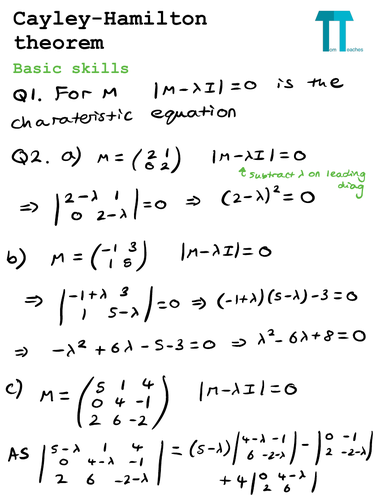 Cayley-Hamilton
theorem
Tom Teaches
Basic skills
Q1. For M |M-λI|=0 is the
charateristic equation
Q2. a) M = (2 1
0 2) |M-λI|=0
↑ subtract λ on leading
diag
⇒ |2-λ 1
0 2-λ| =0 ⇒ (2-λ)²=0
b) M = (-1 3
1 5) |M-λI|=0
⇒ |-1+λ 3
1 5-λ| =0 ⇒ (-1+λ)(5-λ)-3=0
⇒ -λ²+6λ-5-3=0 ⇒ λ²-6λ+8=0
c) M = (5 1 4
0 4 -1
2 6 -2) |M-λI|=0
AS |5-λ 1 4
0 4-λ -1
2 6 -2-λ| = (5-λ)|4-λ -1
6 -2-λ| - |0 -1
2 -2-λ|
+ 4|0 4-λ
2 6|